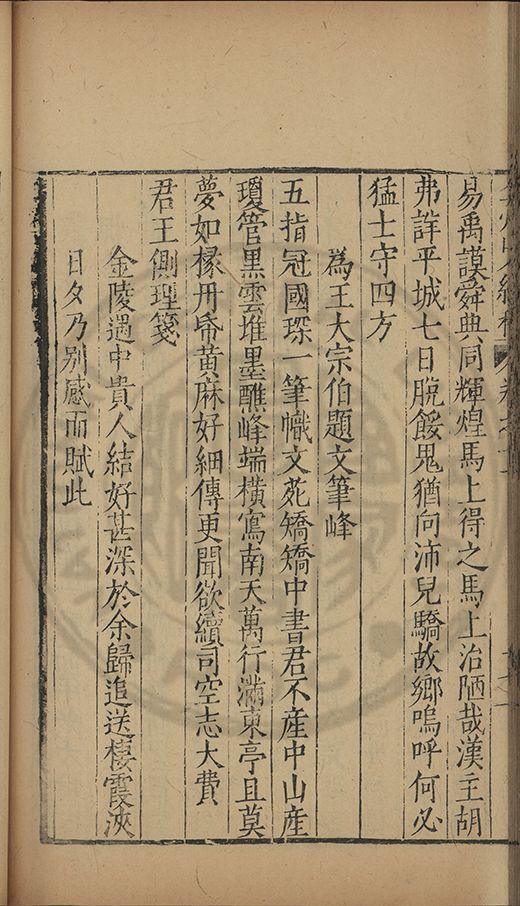 易禹謨舜典同輝煌馬上得之馬上治陋哉漢主胡
弗詳平城七日脫餒鬼猶向沛兒驕故鄉嗚呼何必
猛士守四方
為王大宗伯題文筆峰
五指冠國琛一筆幟文苑矯矯中書君不產中山產
瓊管黑雲堆墨蘸峰端橫寫南天萬行滿東亭且莫
夢如椽丹帋黃麻好細傳更聞欲續司空志大費
君王側理箋
金陵遇中貴人結好甚深於余歸追送棲霞浹
日夕乃別感而賦此